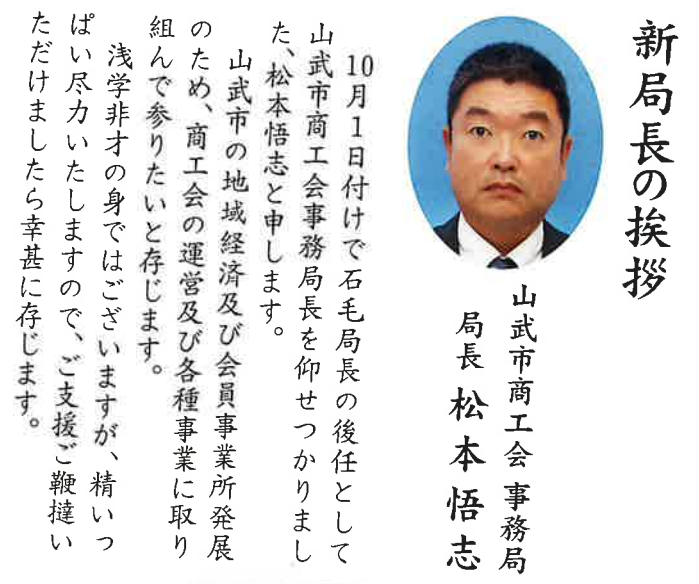 新局長の挨拶
山武市商工会 事務局
局長 松本悟志
10月1日付けで石毛局長の後任として
山武市商工会事務局長を仰せつかりまし
た、松本悟志と申します。
山武市の地域経済及び会員事業所発展
のため、商工会の運営及び各種事業に取り
組んで参りたいと存じます。
浅学非才の身ではございますが、精いっ
ぱい尽力いたしますので、ご支援ご鞭撻い
ただけましたら幸甚に存じます。